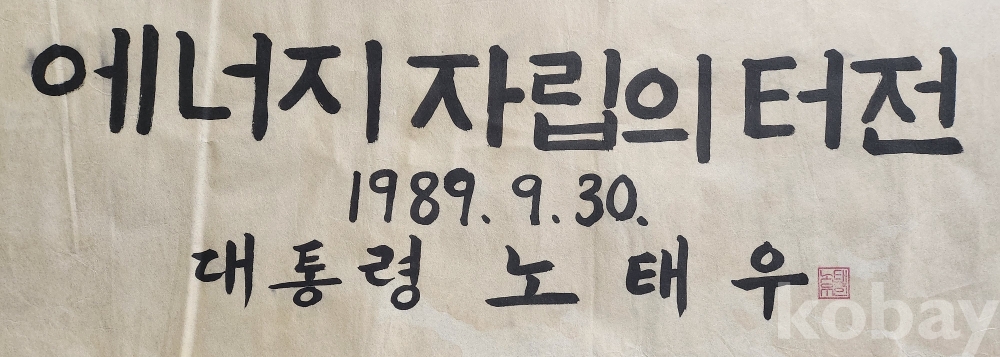 에너지 자립의 터전
1989. 9. 30.
대통령 노태우
kobay